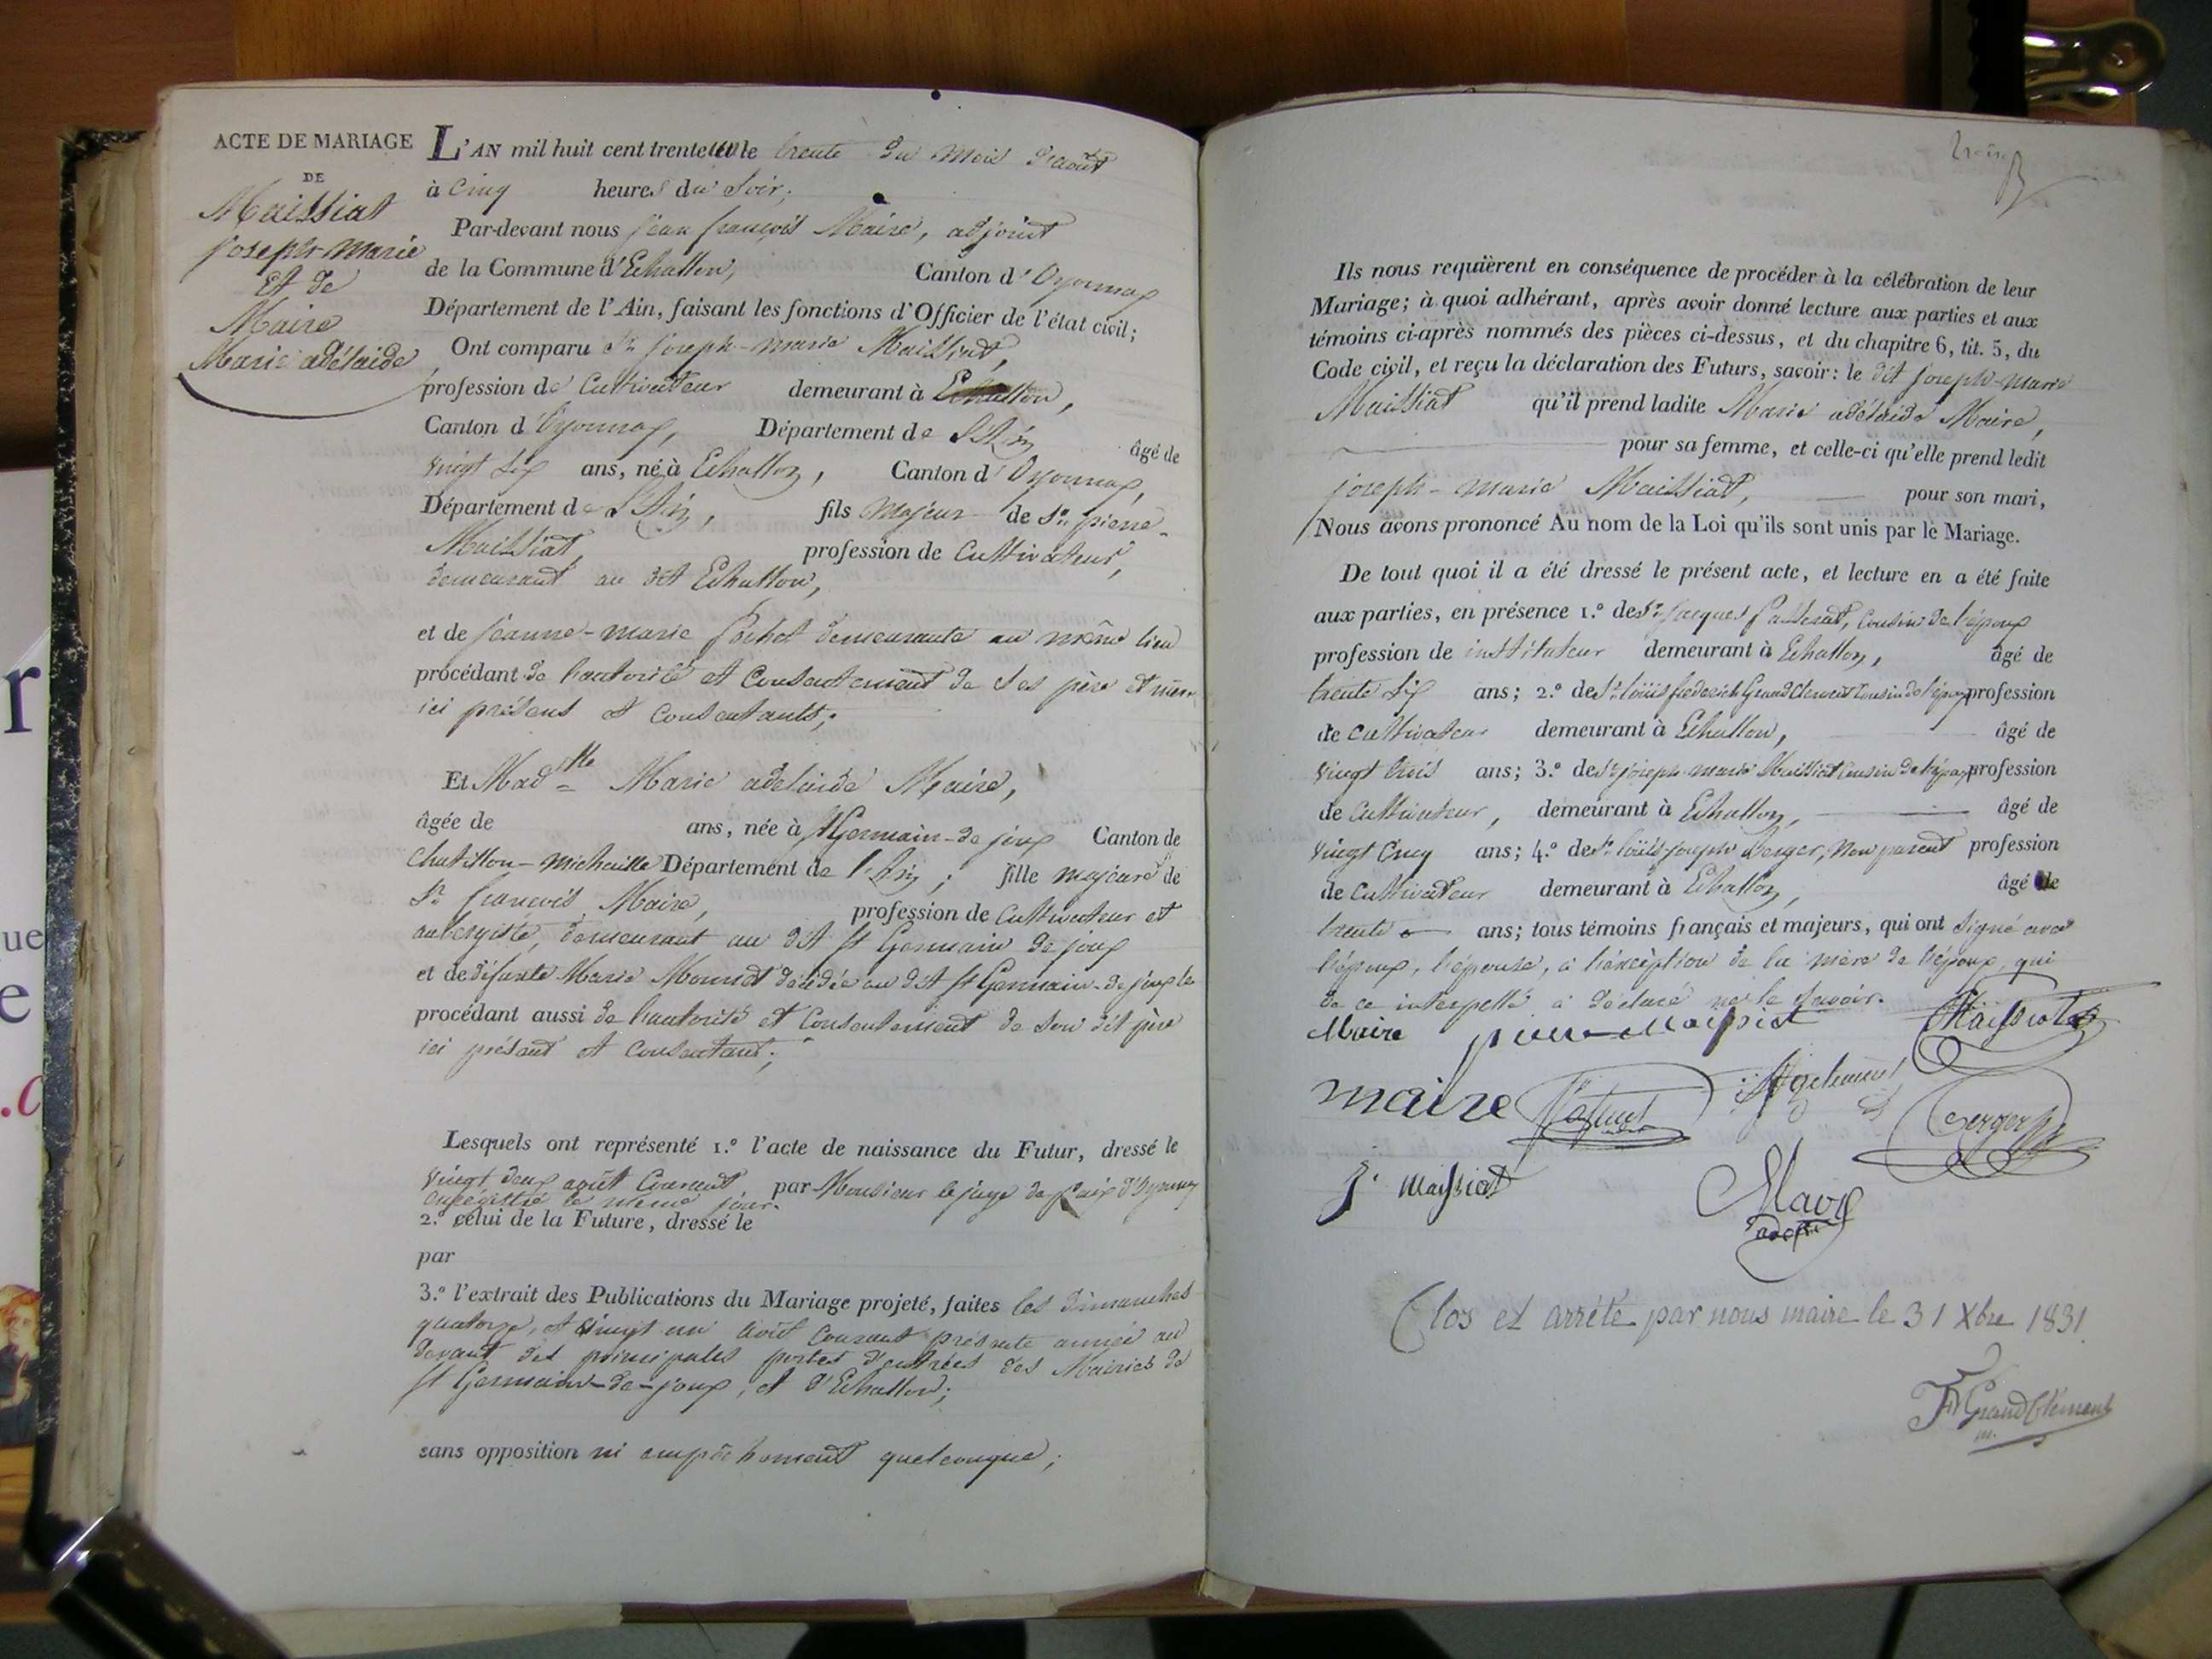 ACTE DE MARIAGE
DE
Maissiat
joseph-marie
Et de
Maire
Marie adélaide
L'AN mil huit cent trente un le trente du Mois d'août
à Cinq heures du Soir;
Par-devant nous jean françois Maire, adjoint
de la Commune d'Echallon, Canton d'Oyonnax
Département de l'Ain, faisant les fonctions d'Officier de l'état civil;
Ont comparu Sr. joseph-marie Maissiat,
profession de Cultivateur demeurant à Echallon,
Canton d'Oyonnax, Département de L'Ain âgé de
vingt six ans, né à Echallon, Canton d'Oyonnax,
Département de L'Ain, fils Majeur de Sr. pierre-
Maissiat, profession de Cultivateur,
demeurant au dit Echallon,
et de jeanne-marie Pochet demeurante au même lieu
procédant de l'autorité et Consentement de Ses père et mère
ici présens et Consentants;
Et Madlle Marie adelaide Maire,
âgée de ans, née à St Germain-de joux Canton de
Chatillon-michaille Département de l'Ain; fille majeure de
Sr. françois Maire, profession de Cultivateur et
aubergiste, demeurant au dit St Germain de joux
et de défunte Marie Mournet décédée au dit St Germain-de joux le
procédant aussi de l'autorité et Consentement de Son dit père
ici présent et Consentant;
Lesquels ont représenté 1.º l'acte de naissance du Futur, dressé le
vingt deux août Courant par Monsieur le juge de paix d'Oyonnax
enregistré le même jour.
2.º celui de la Future, dressé le
par
3.º l'extrait des Publications du Mariage projeté, faites les dimanches
quatorze, et vingt un août Courant présente année au
devant des principales portes d'entrées des Mairies de
St Germain-de-joux, et d'Echallon;
sans opposition ni empêchement quelconque;
Ils nous requièrent en conséquence de procéder à la célébration de leur
Mariage; à quoi adhérant, après avoir donné lecture aux parties et aux
témoins ci-après nommés des pièces ci-dessus, et du chapitre 6, tit. 5, du
Code civil, et reçu la déclaration des Futurs, savoir: le dit joseph-marie
Maissiat qu'il prend ladite Marie adélaide Maire,
pour sa femme, et celle-ci qu'elle prend ledit
joseph-marie Maissiat, pour son mari,
Nous avons prononcé Au nom de la Loi qu'ils sont unis par le Mariage.
De tout quoi il a été dressé le présent acte, et lecture en a été faite
aux parties, en présence 1.º de Sr. jacques Passerat, Cousin de l'époux
profession de instituteur demeurant à Echallon, âgé de
trente six ans; 2.º de Sr. loüis frederich Grand Clement Cousin de l'époux profession
de Cultivateur demeurant à Echallon, âgé de
vingt trois ans; 3.º de Sr. joseph marie Maissiat Cousin de l'époux profession
de Cultivateur, demeurant à Echallon, âgé de
vingt Cinq ans; 4.º de Sr. loüis joseph Berger, Non parent profession
de Cultivateur demeurant à Echallon, âgé de
trente ans; tous témoins français et majeurs, qui ont signé avec
l'époux, l'épouse, à l'éxception de la mère de l'époux, qui
de ce interpellé à déclaré ne le Savoir.
Maire pierre Maissiat Maissiat
maire Berger
j. maissiat Maire
adjoint
Clos et arrêté par nous maire le 31 Xbre 1831
GrandClément
m.